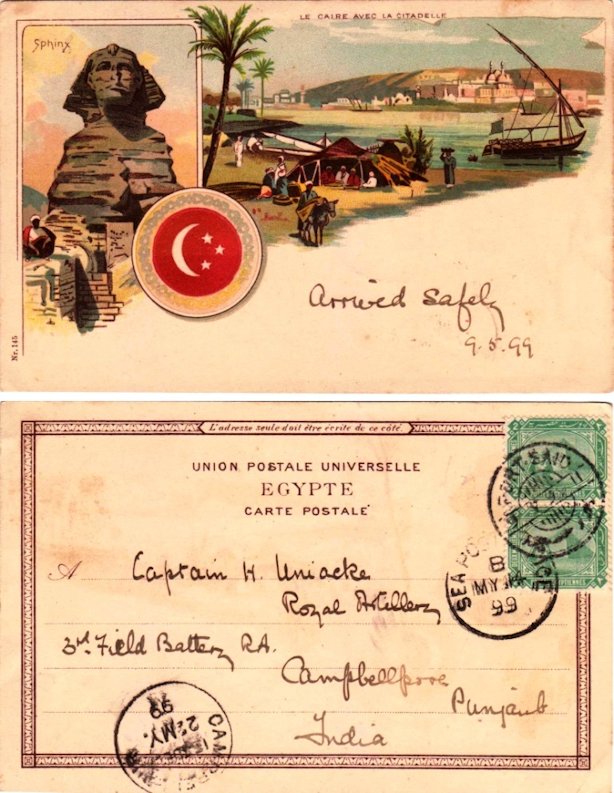 LE CAIRE AVEC LA CITADELLE
Sphinx
Nr. 145
Arrived Safely
9.5.99
L'adresse seule doit être écrite de ce côté.
UNION POSTALE UNIVERSELLE
EGYPTE
CARTE POSTALE
PORT-SAID
SEA POST
B
MY
99
A Captain H. Uniacke
Royal Artillery
3rd. Field Battery R.A.
Campbellpore
Punjaub
India
99
MY.